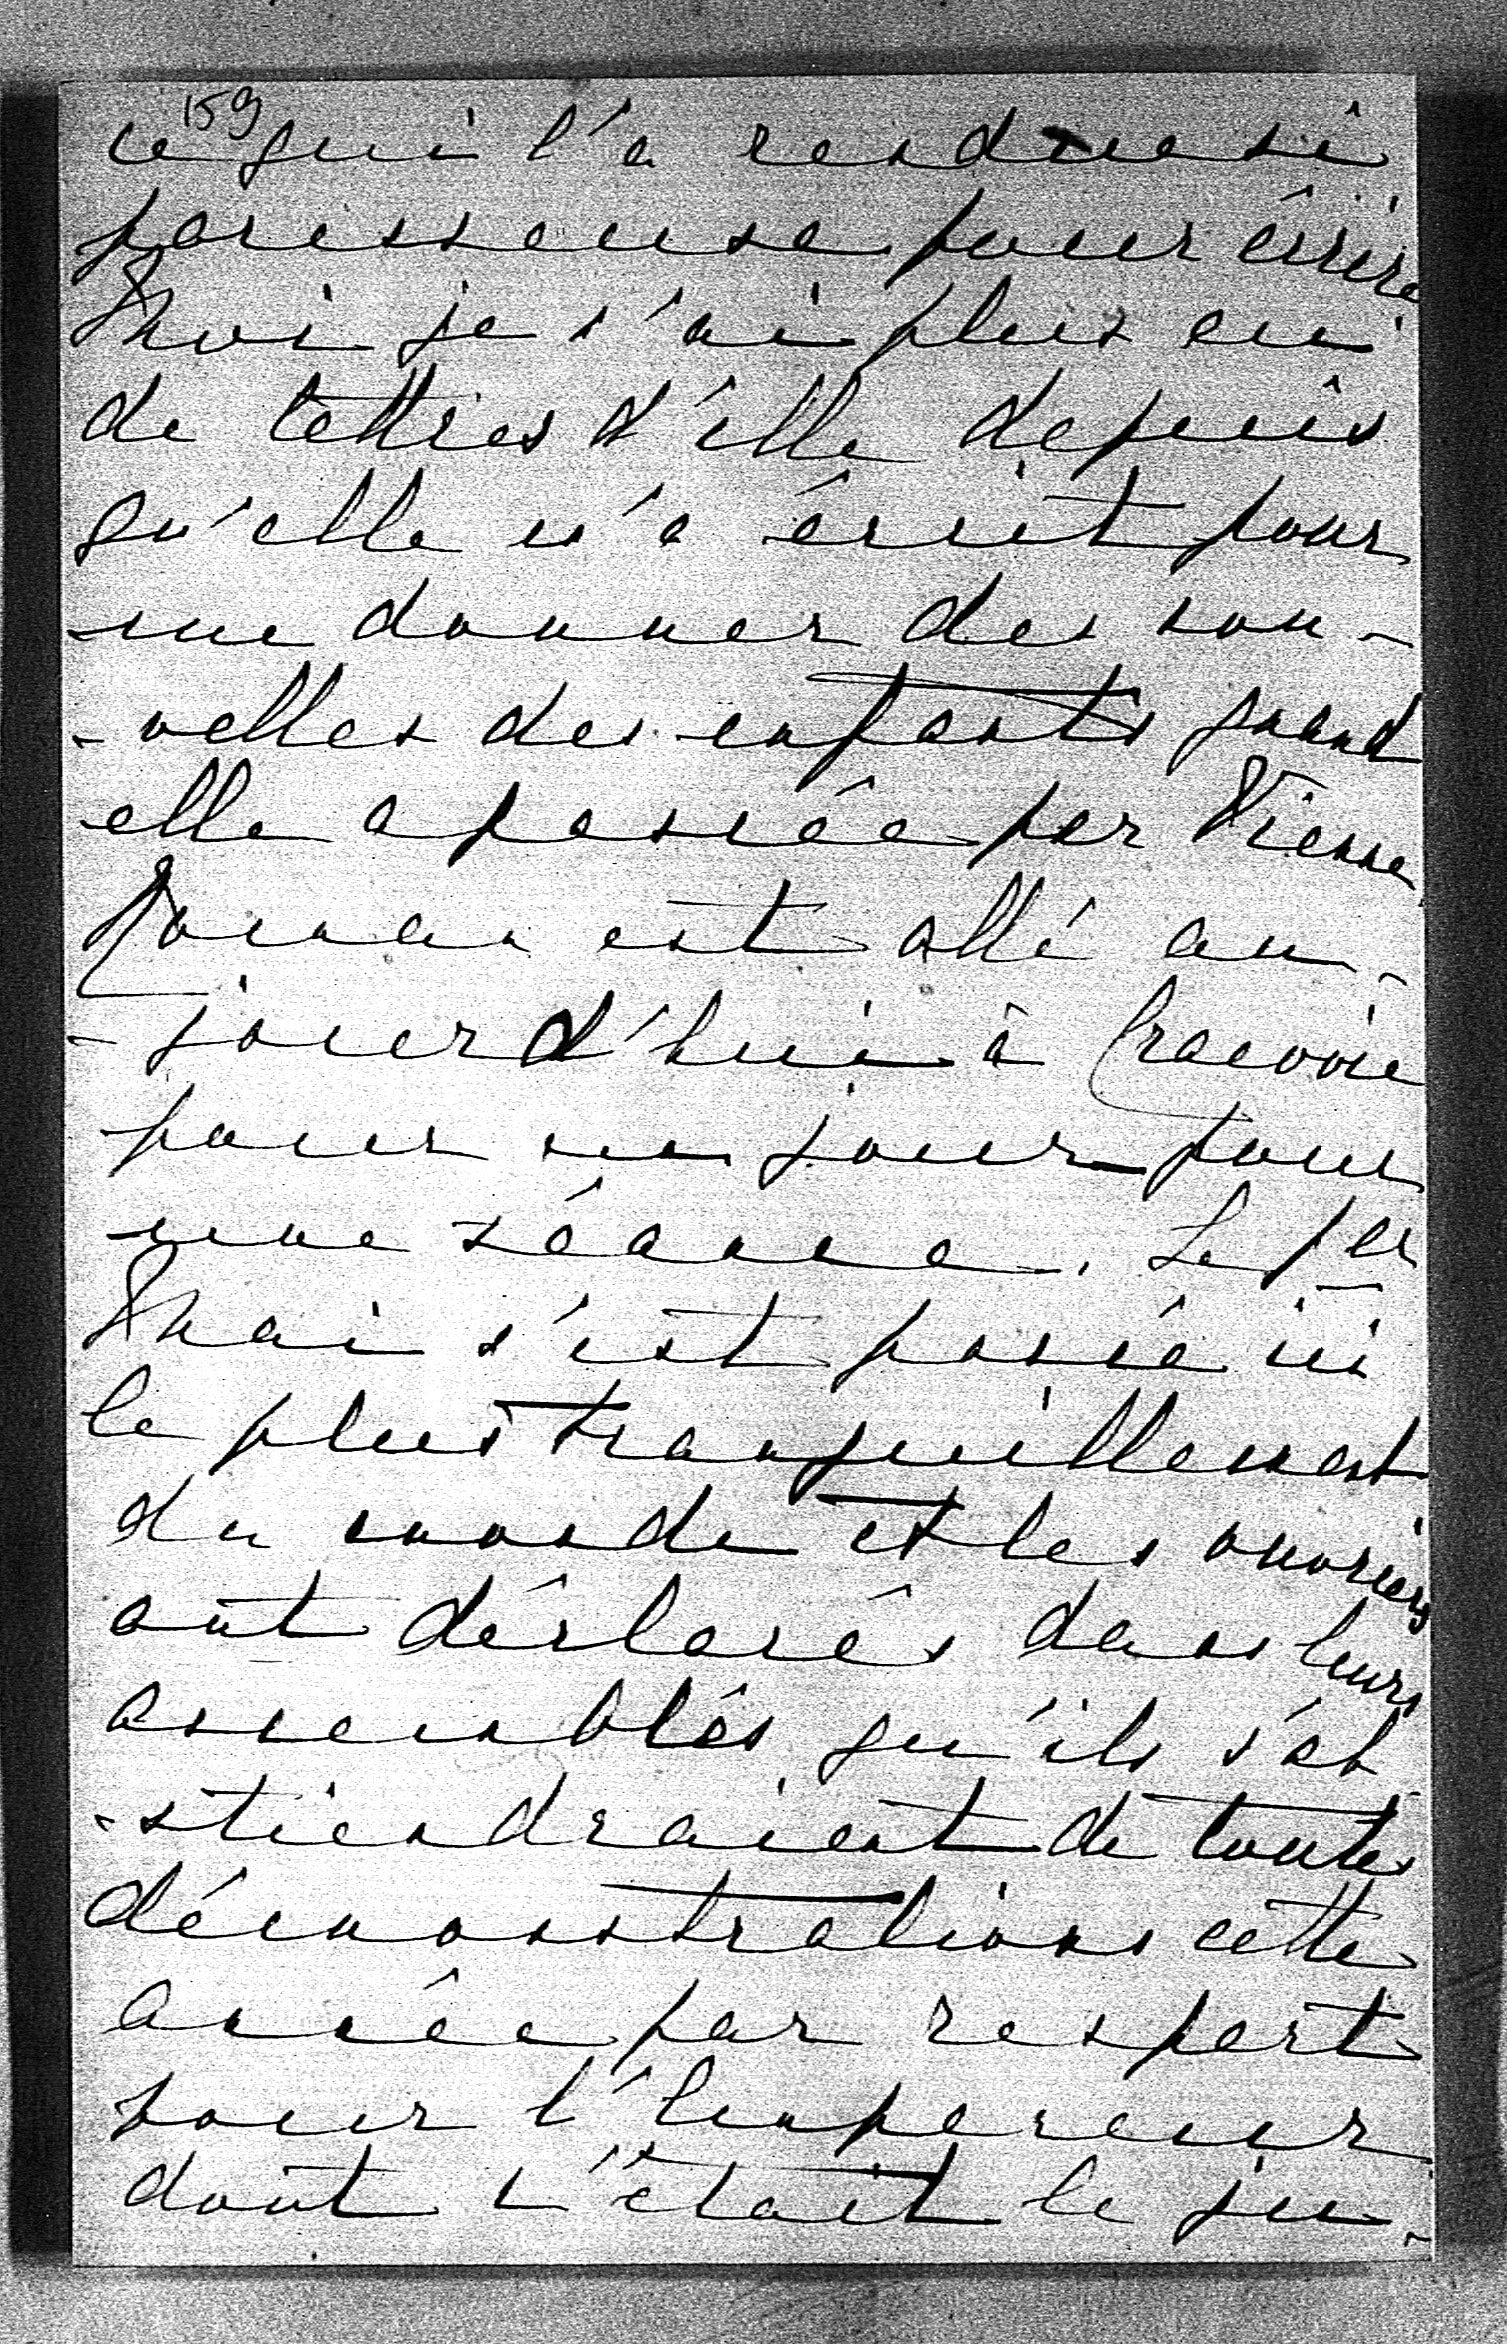 159
ce qui l'a rendue si
paresseuse pour écrire
Moi je n'ai plus eu
de lettres d'elle depuis
qu'elle m'a écrit pour
me donner des nou-
-velles des enfants quand
elle a passée par Vienne
Roman est allé au-
-jourd'hui à Cracovie
pour un jour pour
une séance. Le 1er
Mai s'est passé ici
le plus tranquillement
du monde et les ouvriers
ont déclarés dans leurs
assemblés qu'ils s'ab
-stiendraient de toutes
démonstrations cette
année par respect
pour l'Empereur
dont c'était le ju-